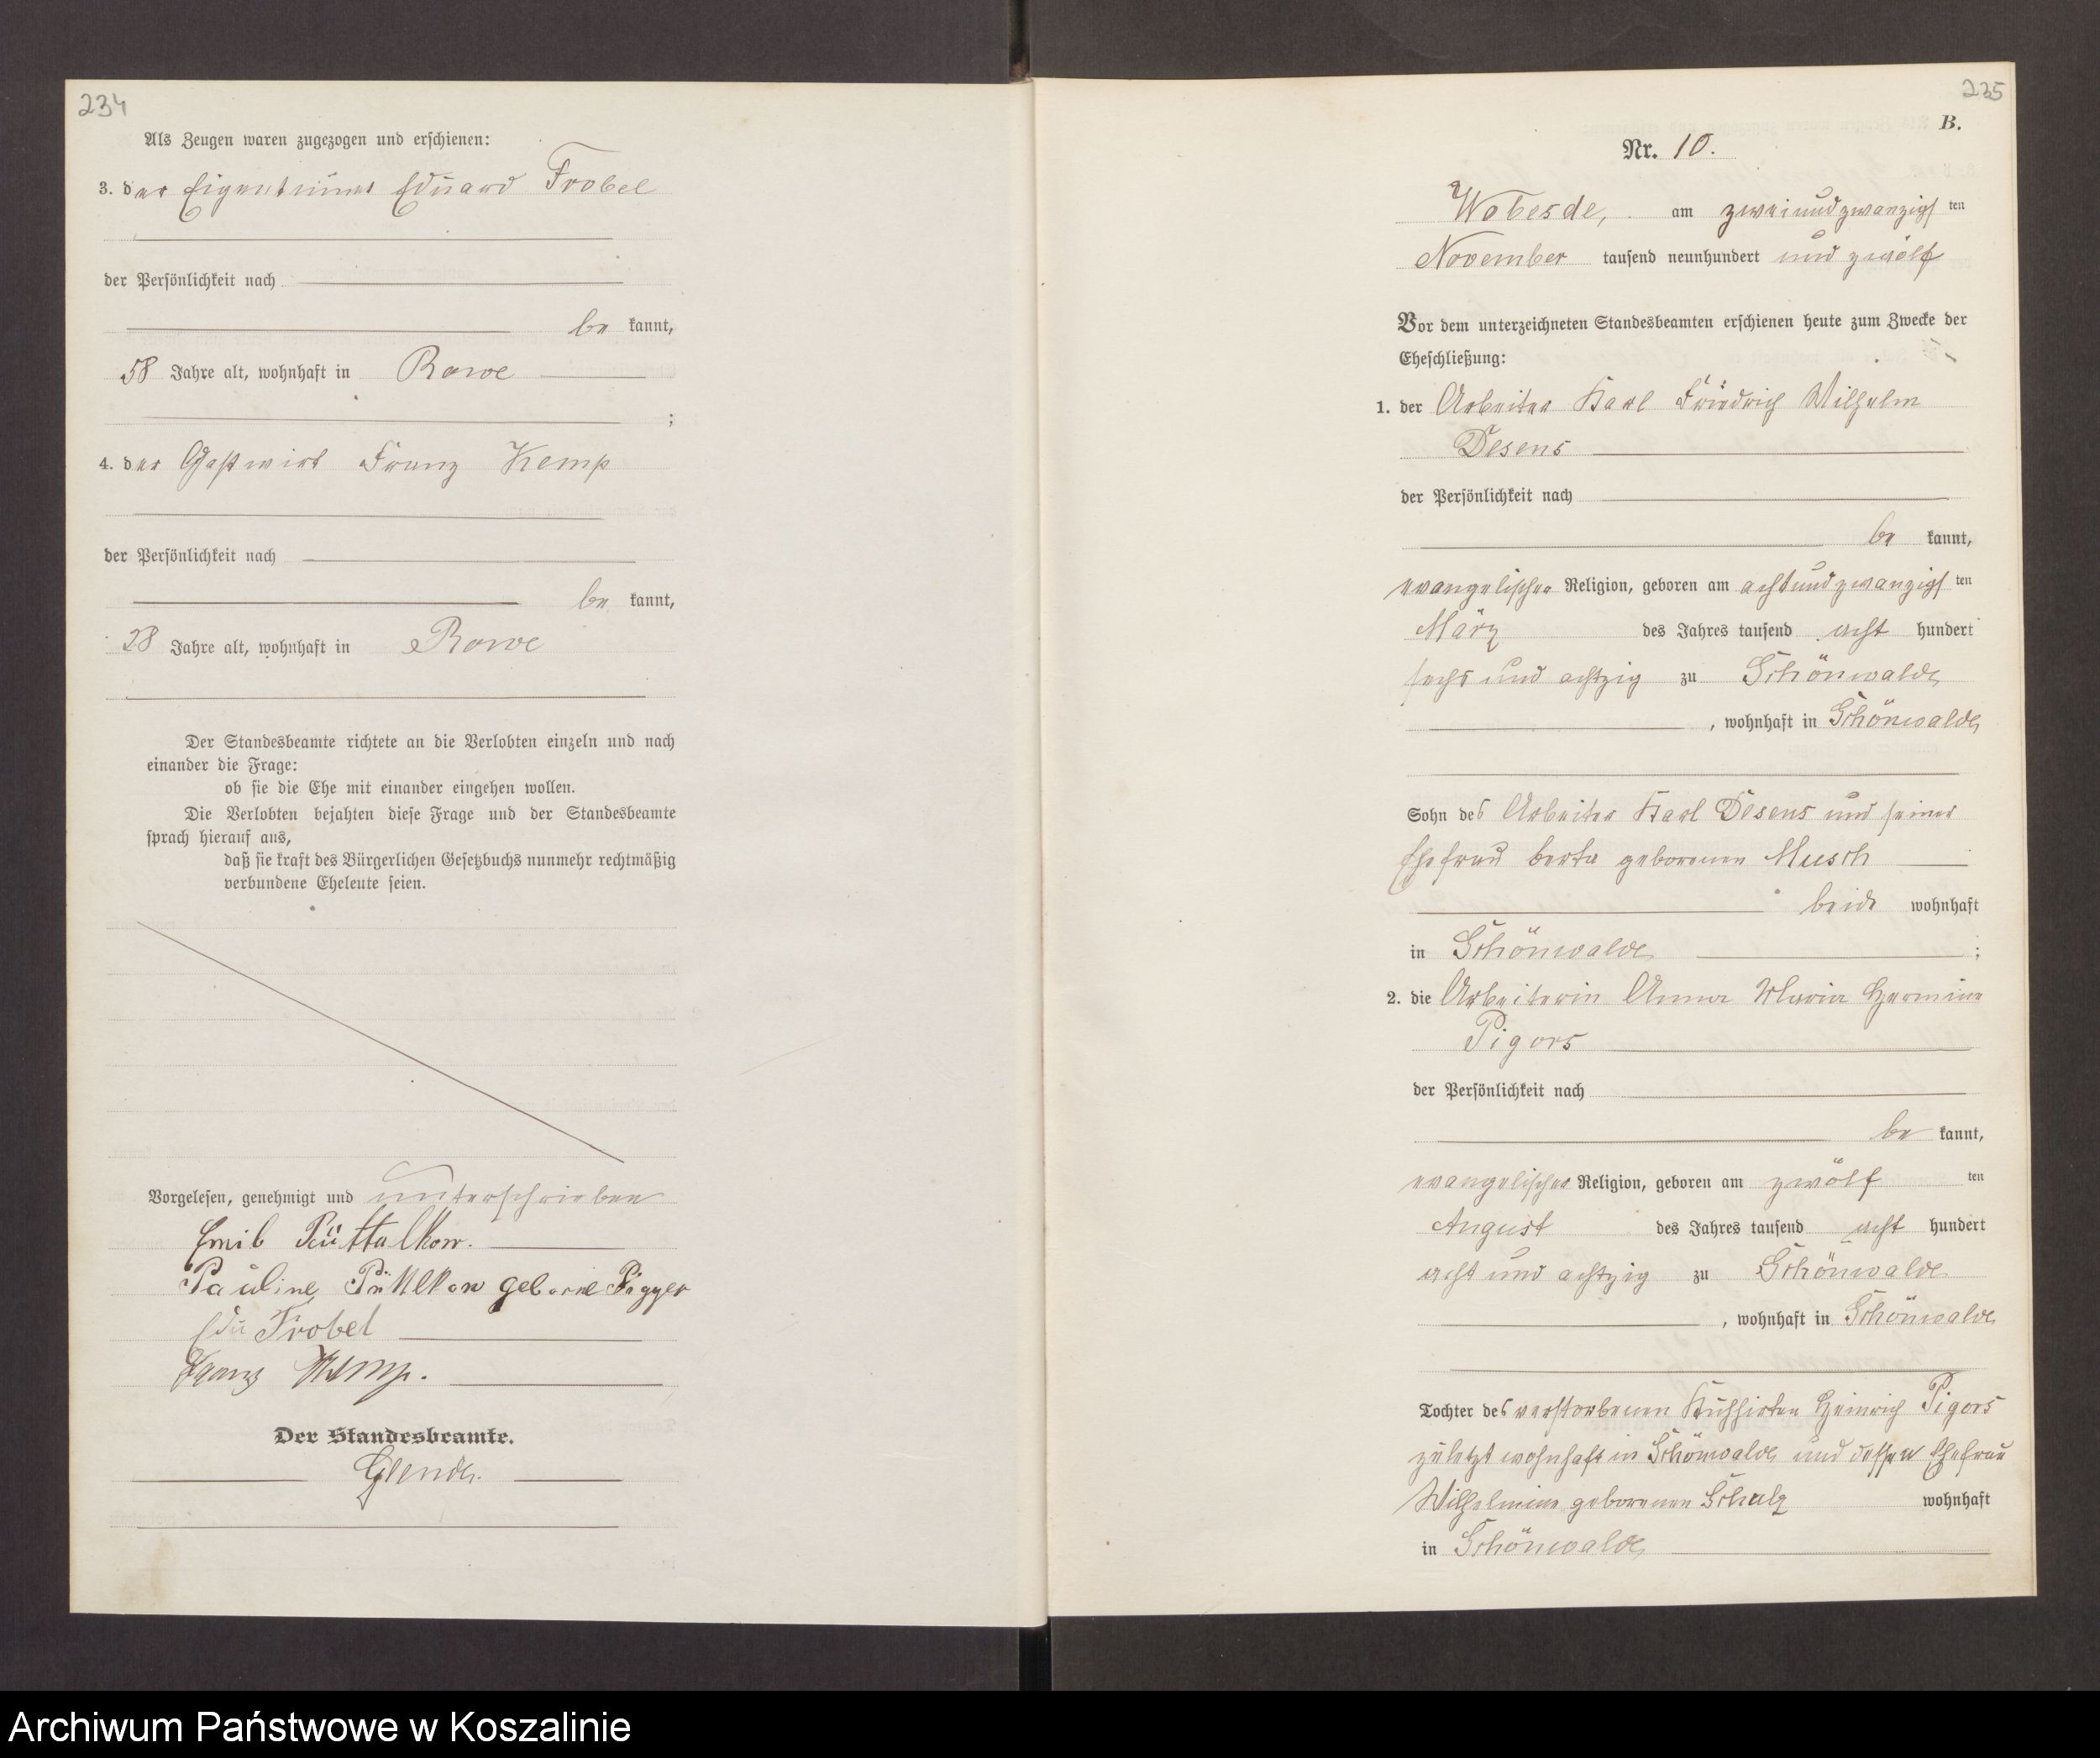 234
Als Zeugen waren zugezogen und erschienen:
3. der Eigentümer Eduard Frobel
der Persönlichkeit nach
be kannt,
58 Jahre alt, wohnhaft in Rowe
;
4. der Gastwirt Franz Kemp
der Persönlichkeit nach
be kannt,
28 Jahre alt, wohnhaft in Rowe
Der Standesbeamte richtete an die Verlobten einzeln und nach
einander die Frage:
ob sie die Ehe mit einander eingehen wollen.
Die Verlobten bejahten diese Frage und der Standesbeamte
sprach hierauf aus,
daß sie kraft des Bürgerlichen Gesetzbuchs nunmehr rechtmäßig
verbundene Eheleute seien.
Vorgelesen, genehmigt und unterschrieben
Emil
Pauline geborne
Edu Frobel
Franz Kemp.
Der Standesbeamte.
235
B.
Nr. 10.
Wobesde, am zweiundzwanzigs ten
November tausend neunhundert und zwölf
Vor dem unterzeichneten Standesbeamten erschienen heute zum Zwecke der
Eheschließung:
1. der Arbeiter Karl Friedrich Wilhelm
Desens
der Persönlichkeit nach
be kannt,
evangelischer Religion, geboren am achtundzwanzigs ten
März des Jahres tausend acht hundert
sechs und achtzig zu Schönwalde
, wohnhaft in Schönwalde
Sohn des Arbeiter Karl Desens und seiner
Ehefrau berta geborenen Musch
beide wohnhaft
in Schönwalde ;
2. die Arbeiterin Anna Maria Hermine
Pigors
der Persönlichkeit nach
be kannt,
evangelischer Religion, geboren am zwölf ten
August des Jahres tausend acht hundert
acht und achtzig zu Schönwalde
, wohnhaft in Schönwalde
Tochter des verstorbenen Kuhhirten Heinrich Pigors
zuletzt wohnhaft in Schönwalde und dessen Ehefrau
Wilhelmine geborenen Schulz wohnhaft
in Schönwalde
Archiwum Państwowe w Koszalinie